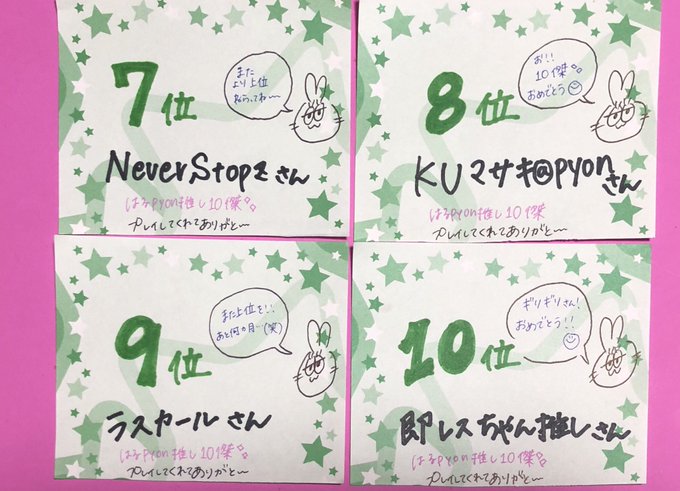 7位
また
より上位
ねらってねー
NeverStopzさん
はるpyon推し10傑
プレイしてくれてありがと〜
8位
お!!
10傑
おめでとう
KUマサキ@pyonさん
はるpyon推し10傑
プレイしてくれてありがと〜
9位
また上位を!!
あと何ヶ月…(笑)
ラスカールさん
はるpyon推し10傑
プレイしてくれてありがと〜
10位
ギリギリさん!
おめでとう!!
即レスちゃん推しさん
はるpyon推し10傑
プレイしてくれてありがと〜